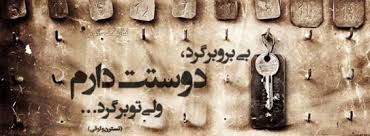 بی برو برگرد،
دوستت دارم
ولی تو برگرد...
(نسترن